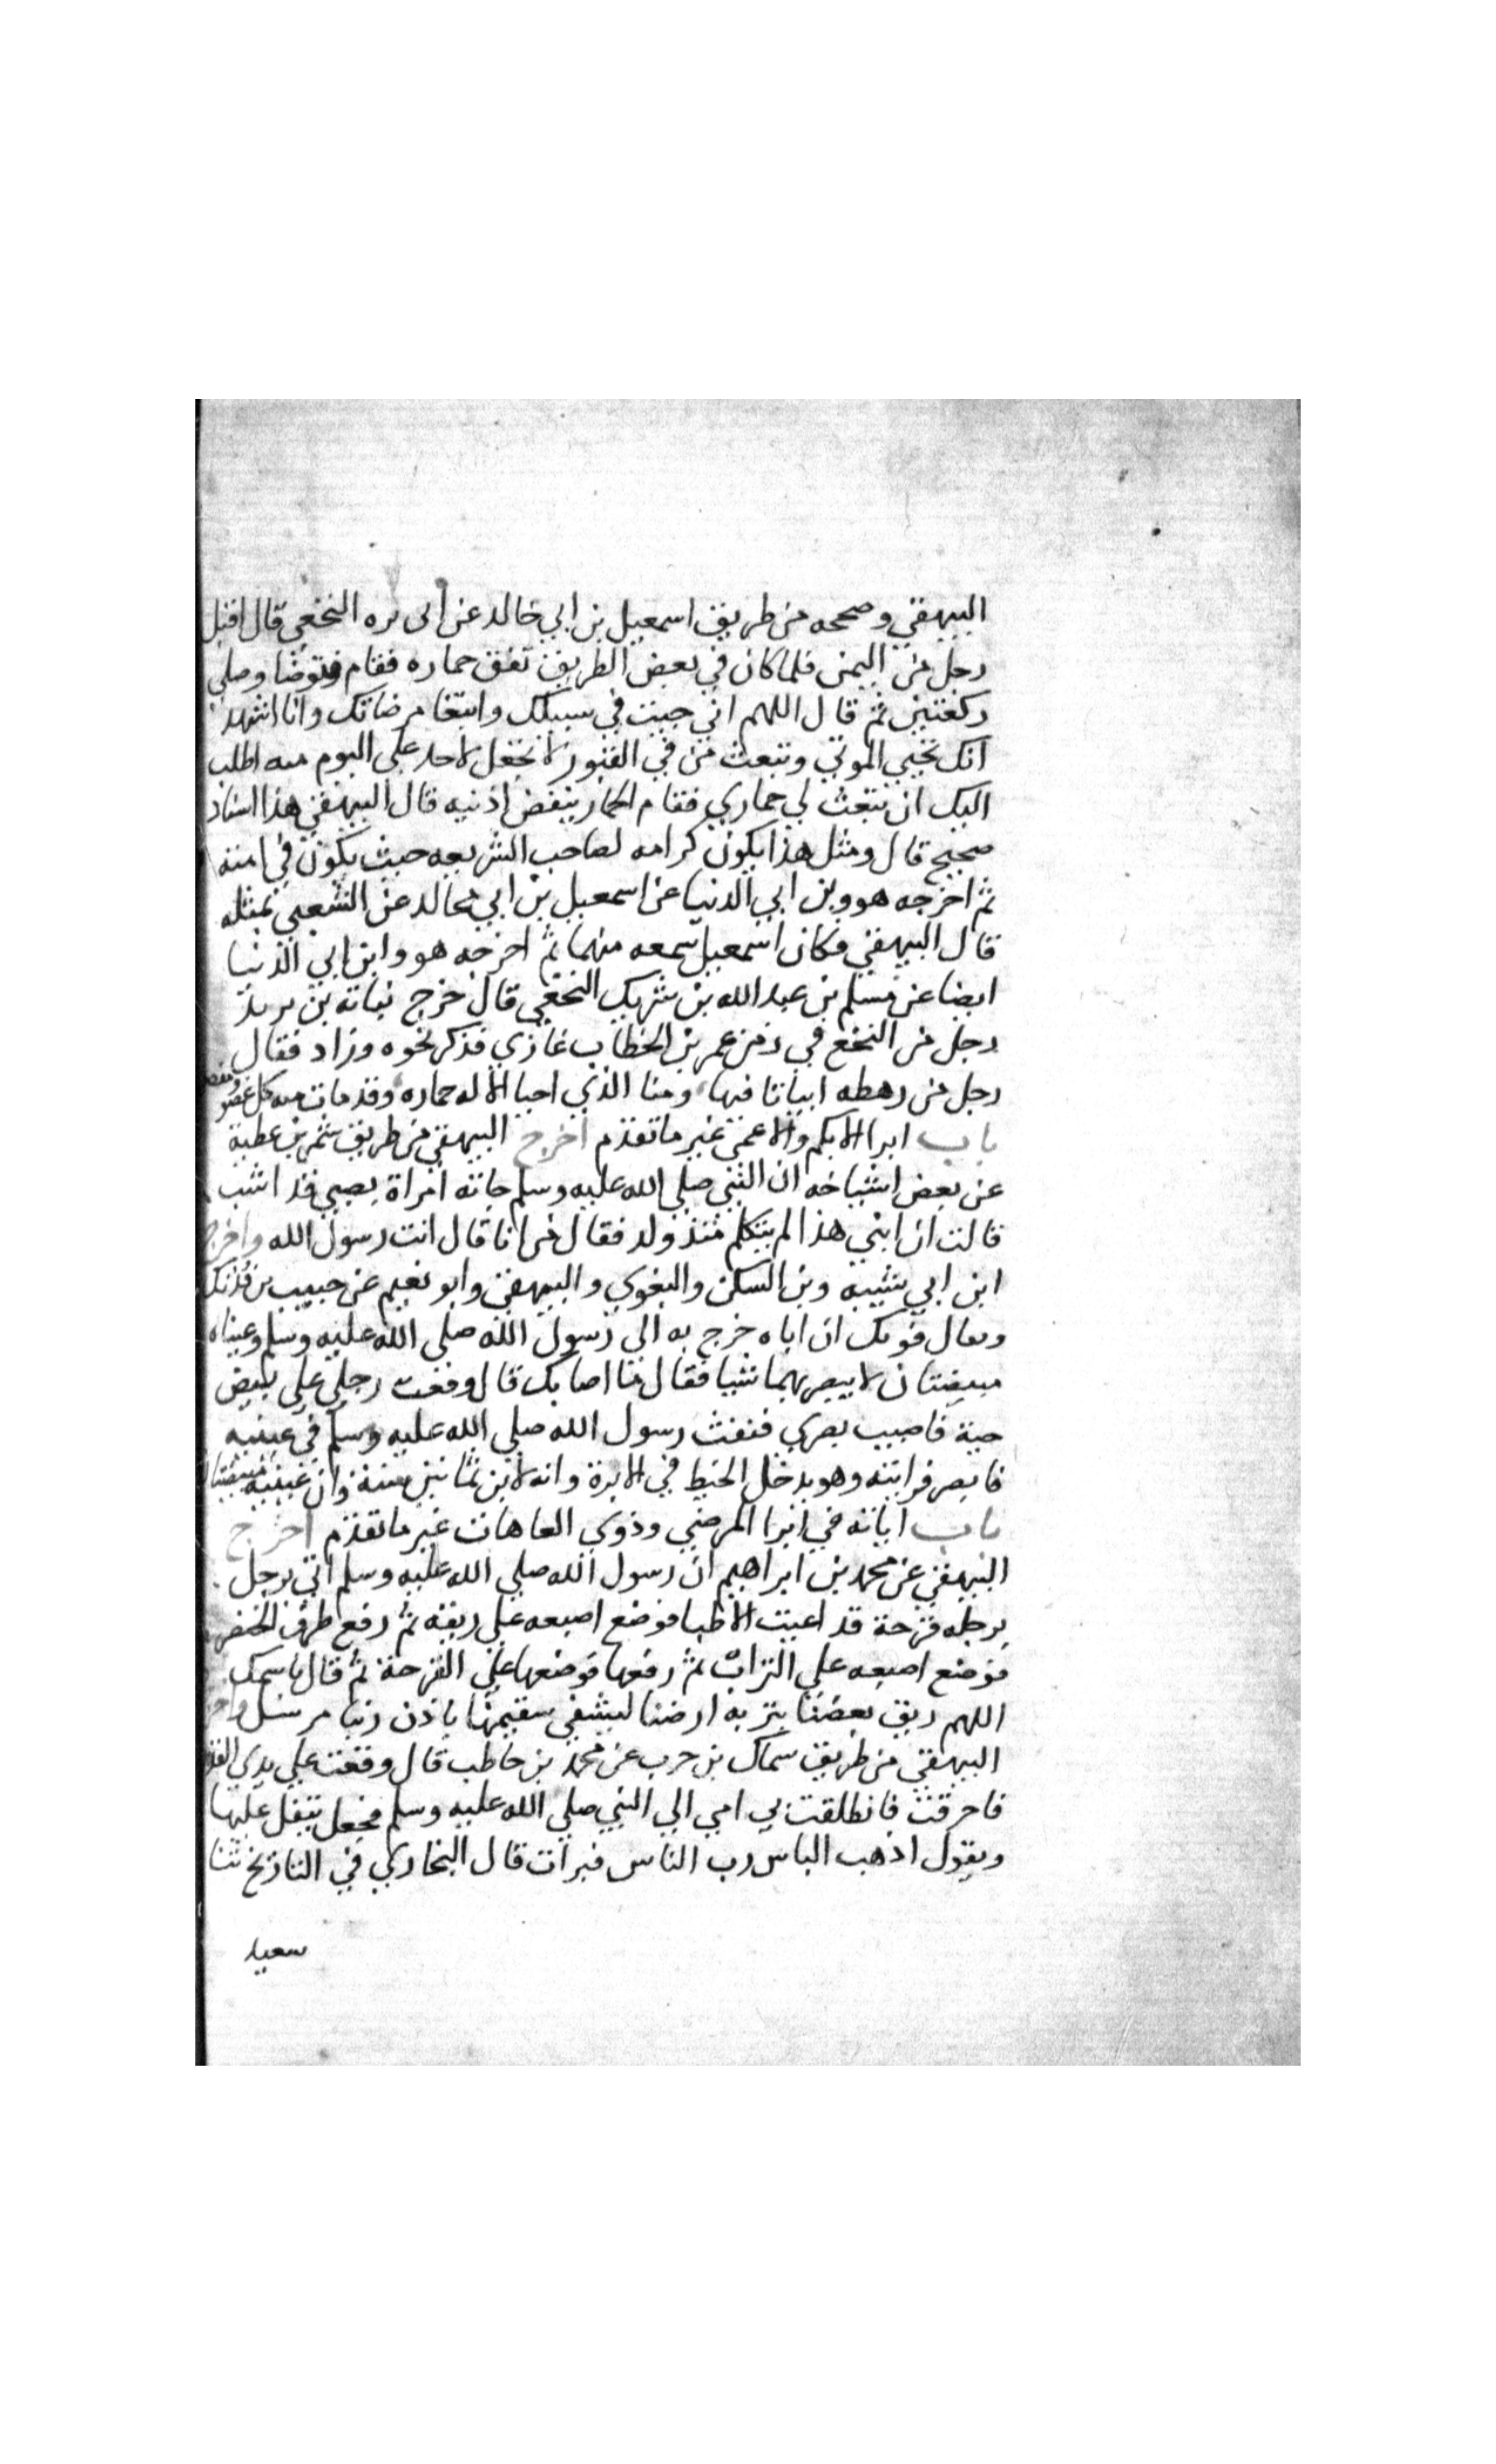 البيهقي وصححه من طريق اسمعيل بن ابي خالد عن ابى بره النخعي قال اقبل
رجل من اليمن فلما كان في بعض الطريق نفق حماره فقام فتوضا وصلي
ركعتين ثم قال اللهم اني جيت في سبيلك وابتغا مرضاتك وانا اشهد
انك تحيي الموتي وتبعث من في القبور لا تجعل لاحد علي اليوم منه اطلب
اليك ان تبعث لي حماري فقام الحمار ينفض اذنيه قال البيهقي هذا اسناد
صحيح قال ومثل هذا يكون كرامه لصاحب الشريعه حيث يكون في امته
ثم اخرجه هو وبن ابي الدنيا عن اسمعيل بن ابي خالد عن الشعبي بمثله
قال البيهقي وكان اسمعيل سمعه منهما ثم اخرجه هو وابن ابي الدنيا
ايضا عن مسلم بن عبد الله بن شريك النخعي قال خرج نباته بن يريد
رجل من النخع في زمن عمر بن الخطاب غازي فذكر نحوه وزاد فقال
رجل من رهطه ابياتا فيها ومنا الذي احيا الاله حماره وقد مات منه كل عضو
باب ابرا الابكم والاعمى غير ما تقدم اخرج البيهقي من طريق شمر بن عطية
عن بعض اشياخه ان النبي صلي الله عليه وسلم جاته امراة بصبي قد اشب
قالت ان ابني هذا لم يتكلم منذ ولد فقال من انا قال انت رسول الله واخرج
ابن ابي شيبه وبن السكن والبغوي والبيهقي وابو نعيم عن حبيب بن فديك
ويقال فويك ان اباه خرج به الي رسول الله صلي الله عليه وسلم وعيناه
مبيضتان لا يبصر بهما شيا فقال ما اصابك قال وقعت رجلي علي بيض
حية فاصيب بصري فنفث رسول الله صلي الله عليه وسلم في عينيه
فابصر فرايته وهو يدخل الخيط في الابرة وانه لابن ثمانين سنة وان عينيه
باب اياته في ابرا المرضي وذوي العاهات غير ما تقدم اخرج
البيهقي عن محمد بن ابراهيم ان رسول الله صلي الله عليه وسلم اتي برجل
برجله قرحة قد اعيت الاطبا فوضع اصبعه علي ريقه ثم رفع طرف الخنصر
فوضع اصبعه علي التراب ثم رفعها فوضعها علي القرحة ثم قال باسمك
اللهم ريق بعضنا بتربه ارضنا ليشفي سقيمنا باذن ربنا مرسل
البيهقي من طريق سماك بن حرب عن محمد بن حاطب قال وقعت علي يدي القدر
فاحرقت فانطلقت بي امي الي النبي صلي الله عليه وسلم فجعل يتفل عليها
ويقول اذهب الباس رب الناس فبرات قال البخاري في التاريخ ثنا
سعيد